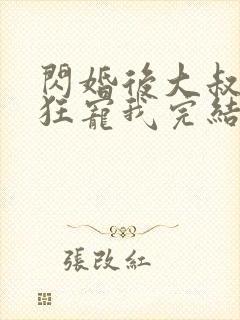 閃婚後大叔
狂寵我完結
張改紅